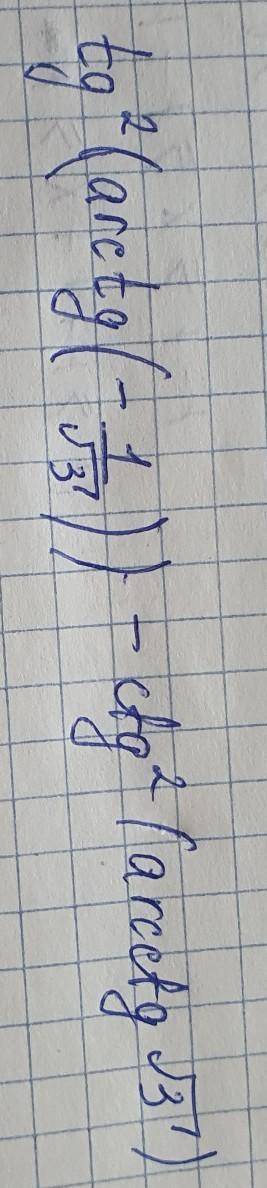 tg²(arctg(-1/√3)) - ctg²(arcctg √3)